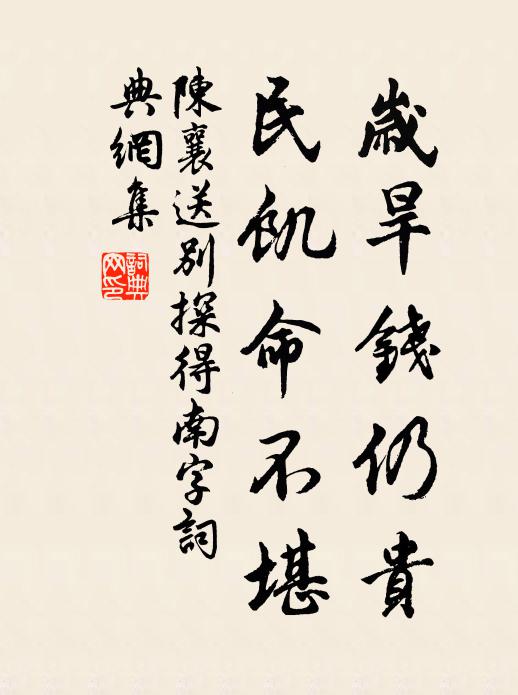 歲旱錢仍貴
民飢命不堪
陳襄送別探得南字詞
典網集
詞典網印